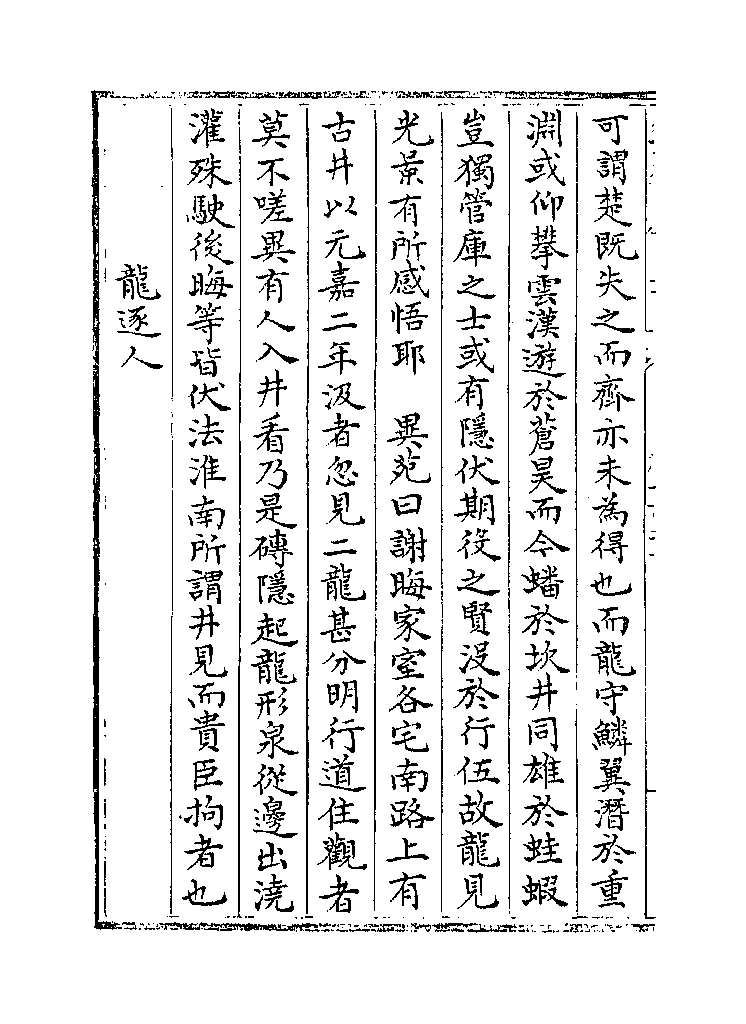 可謂楚既失之而齊亦未為得也而龍守鱗翼潛於重
淵或仰攀雲漢遊於蒼昊而今蟠於坎井同雄於蛙蝦
豈獨管庫之士或有隱伏期役之賢没於行伍故龍見
光景有所感悟耶　異苑曰謝晦家室各宅南路上有
古井以元嘉二年汲者忽見二龍甚分明行道住觀者
莫不嗟異有人入井看乃是磚隱起龍形泉從邊出澆
灌殊駛後晦等皆伏法淮南所謂井見而貴臣拘者也
龍逐人